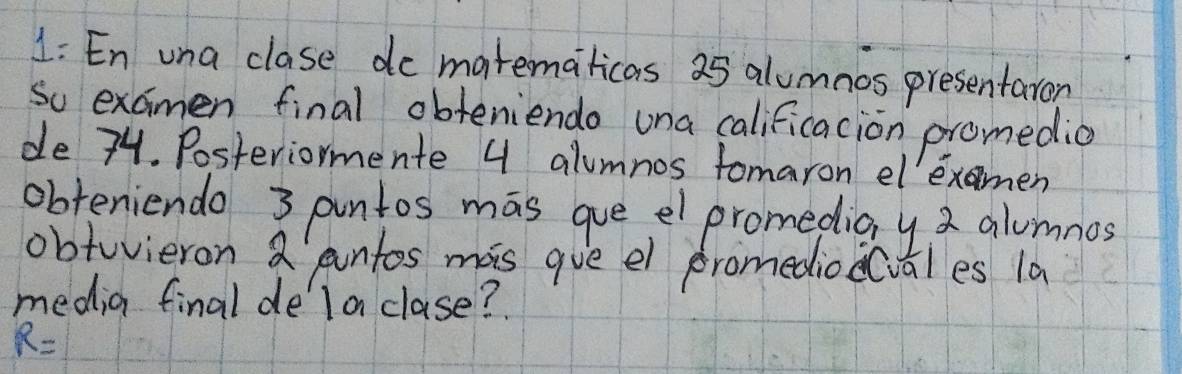 1: En una clase de matemáticas 25 alumnos presentaron
su exámen final obteniendo una calificación promedio
de 74. Posteriormente 4 alumnos tomaron el éxamen
obteniendo 3 puntos más que el promedio, y 2 alumnos
obtuvieron 2 puntos más que el promedio ¿Cuál es la
media final de la clase?.
R=